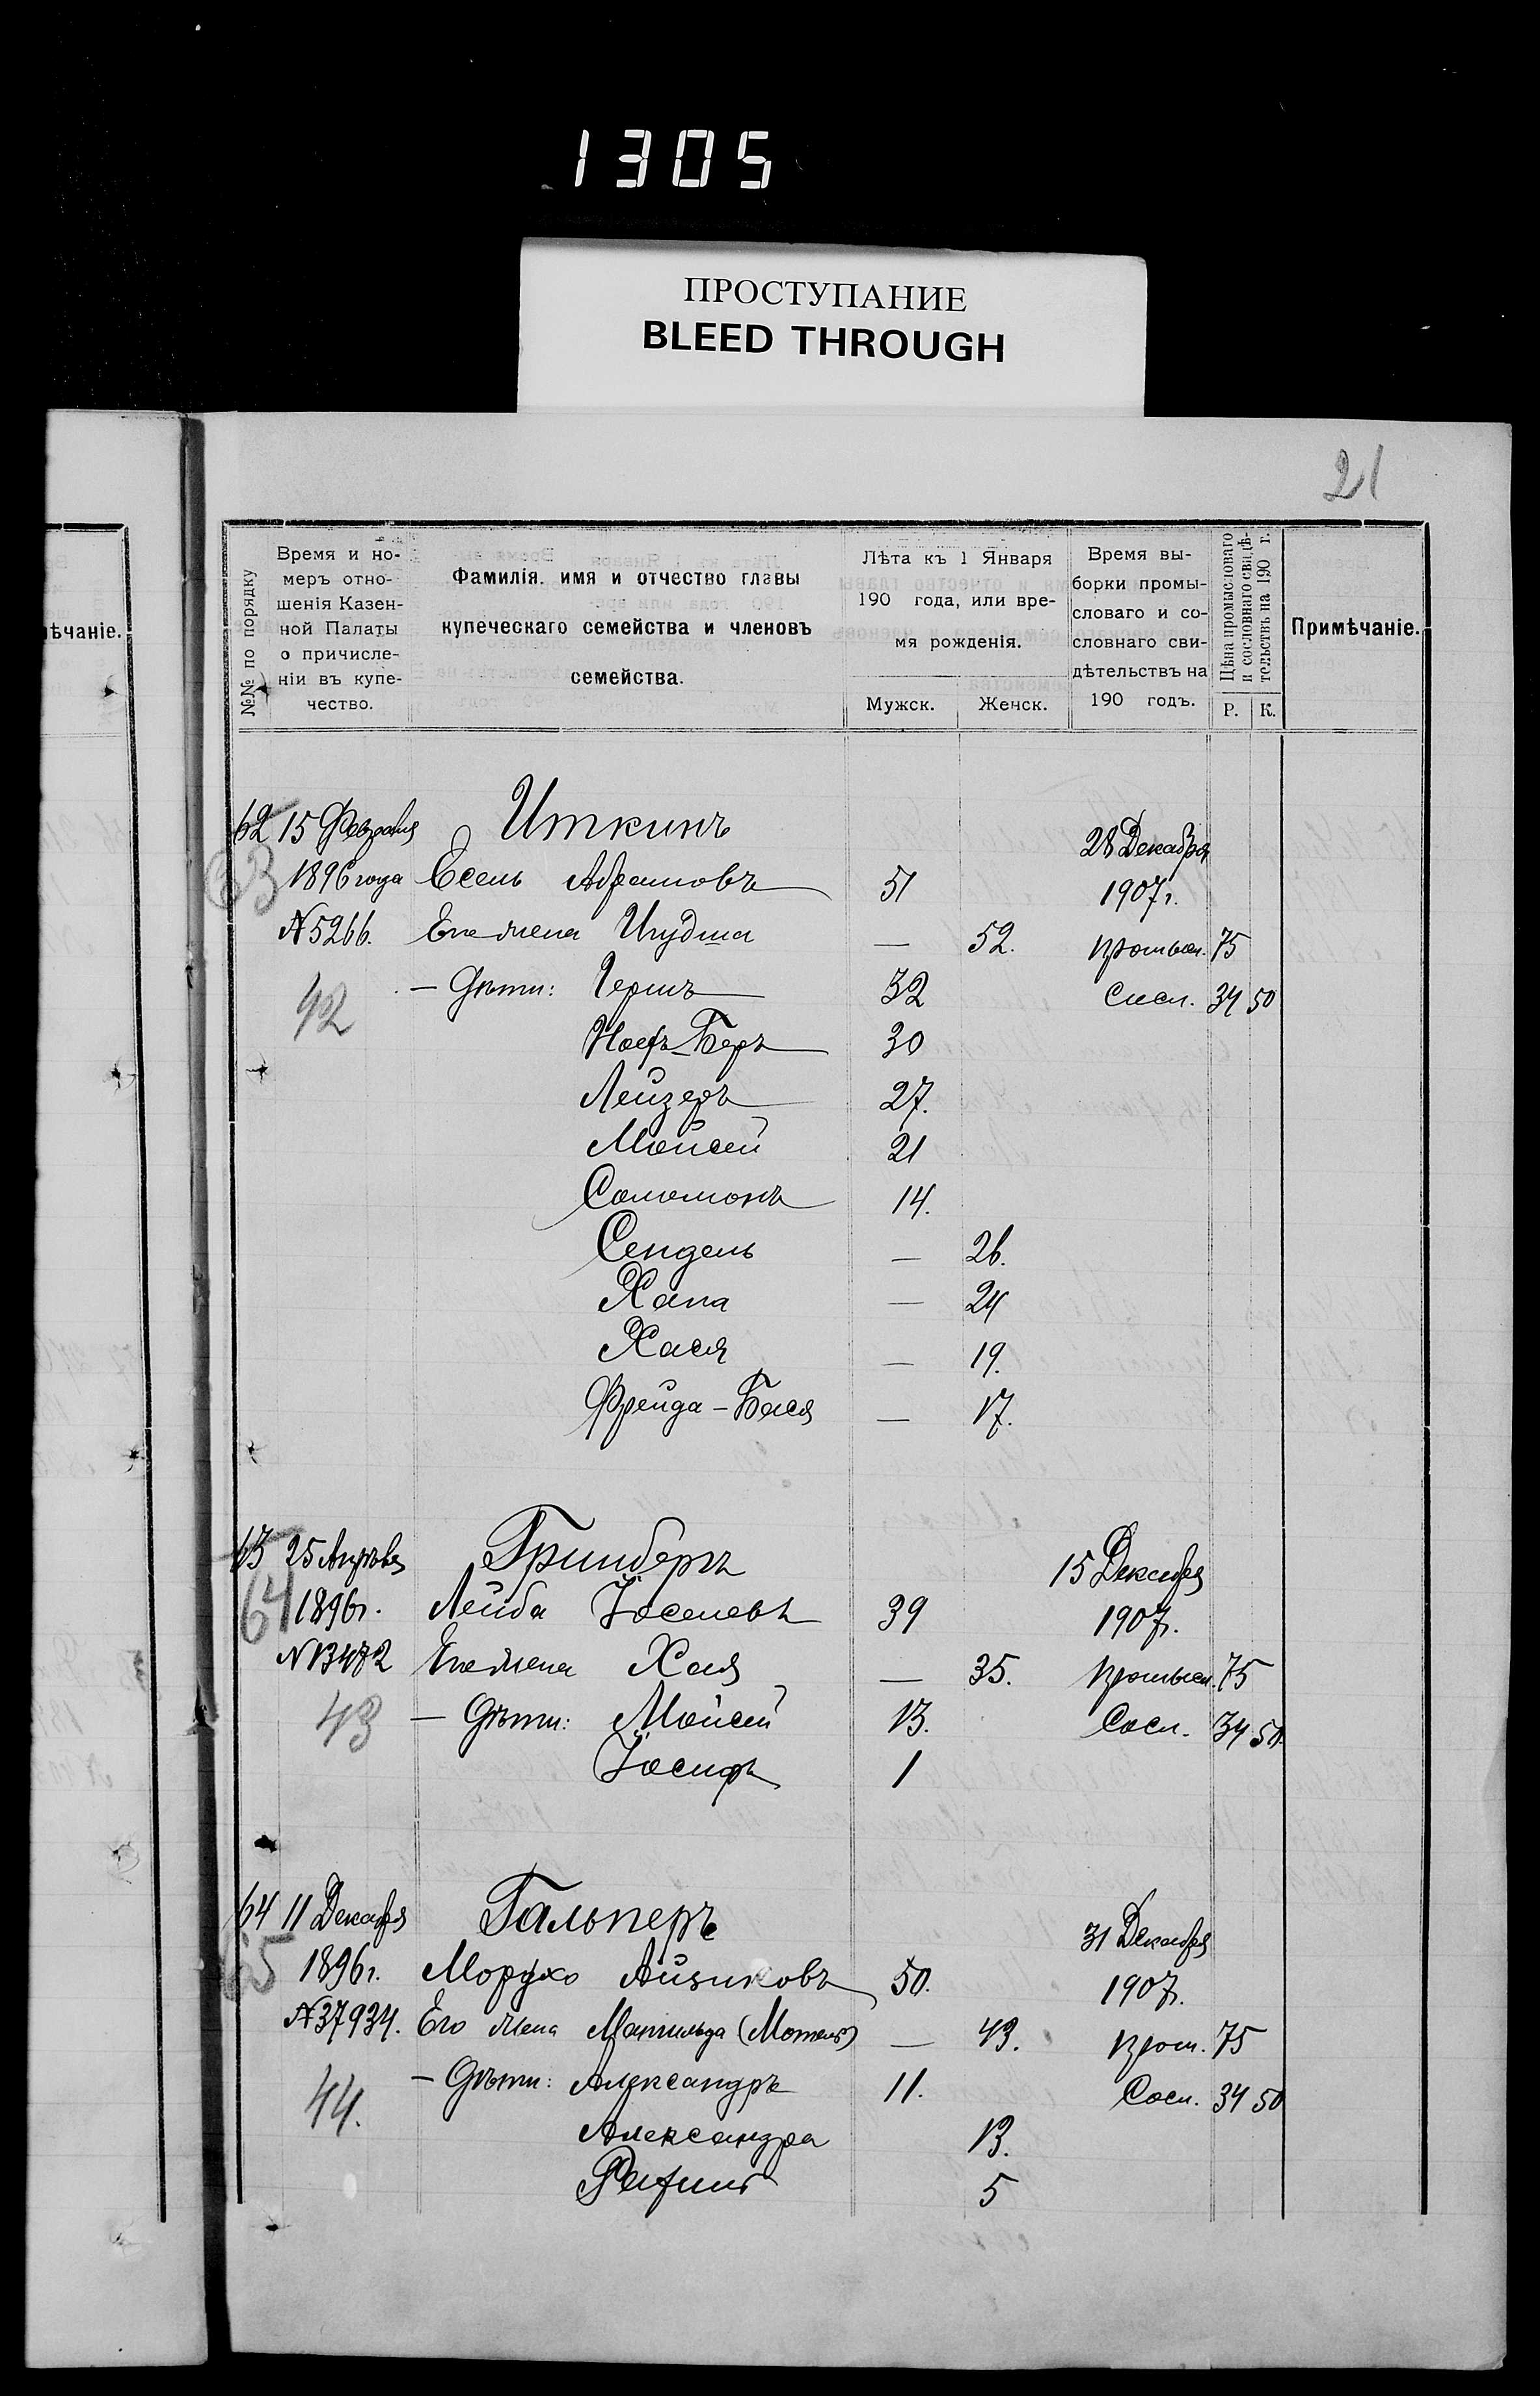 1305
ПРОСТУПАНИЕ
BLEED THROUGH
21
ѣчаніе.
№№ по порядку
Время и но-
меръ отно-
шенія Казен-
ной Палаты
о причисле-
ніи въ купе-
чество.
Фамилія. имя и отчество главы
купеческаго семейства и членовъ
семейства.
Лѣта къ 1 Января
190 года, или вре-
мя рожденія.
Мужск. Женск.
Время вы-
борки промы-
словаго и со-
словнаго сви-
дѣтельствъ на
190 годъ.
Цѣна промысловаго
и сословнаго свидѣ-
тельствъ на 190 г.
Р. К.
Примѣчаніе.
62 15 Февраля Иткинъ 28 Декабря
63 1896 года Есель Абрамовъ 51 1907 г.
N 5266. Его жена — 52. промысл. 75
42 — Дѣти: Гершъ 32 Сосл. 34 50
Беръ 30
Лейзеръ 27.
Мойсей 21
Соломонъ 14.
— 26.
Хана — 24
Хася — 19.
Фрейда-Бася — 17.
25 Апрѣля Гринберъ 15 Декабря
64 1896 г. Лейба Іоселевъ 39 1907 г.
N 13472 Его жена Хая — 35. промысл. 75
43 — Дѣти: Мойсей 13. Сосл. 34 50.
Іосифъ 1
64 11 Декабря Гальперъ 31 Декабря
65 1896 г. Мордхо Айзиковъ 50. 1907 г.
N 37934. Его жена Матильда — 43. пром. 75
44. — Дѣти: Александръ 11. Сосл. 34 50
Александра 13.
5